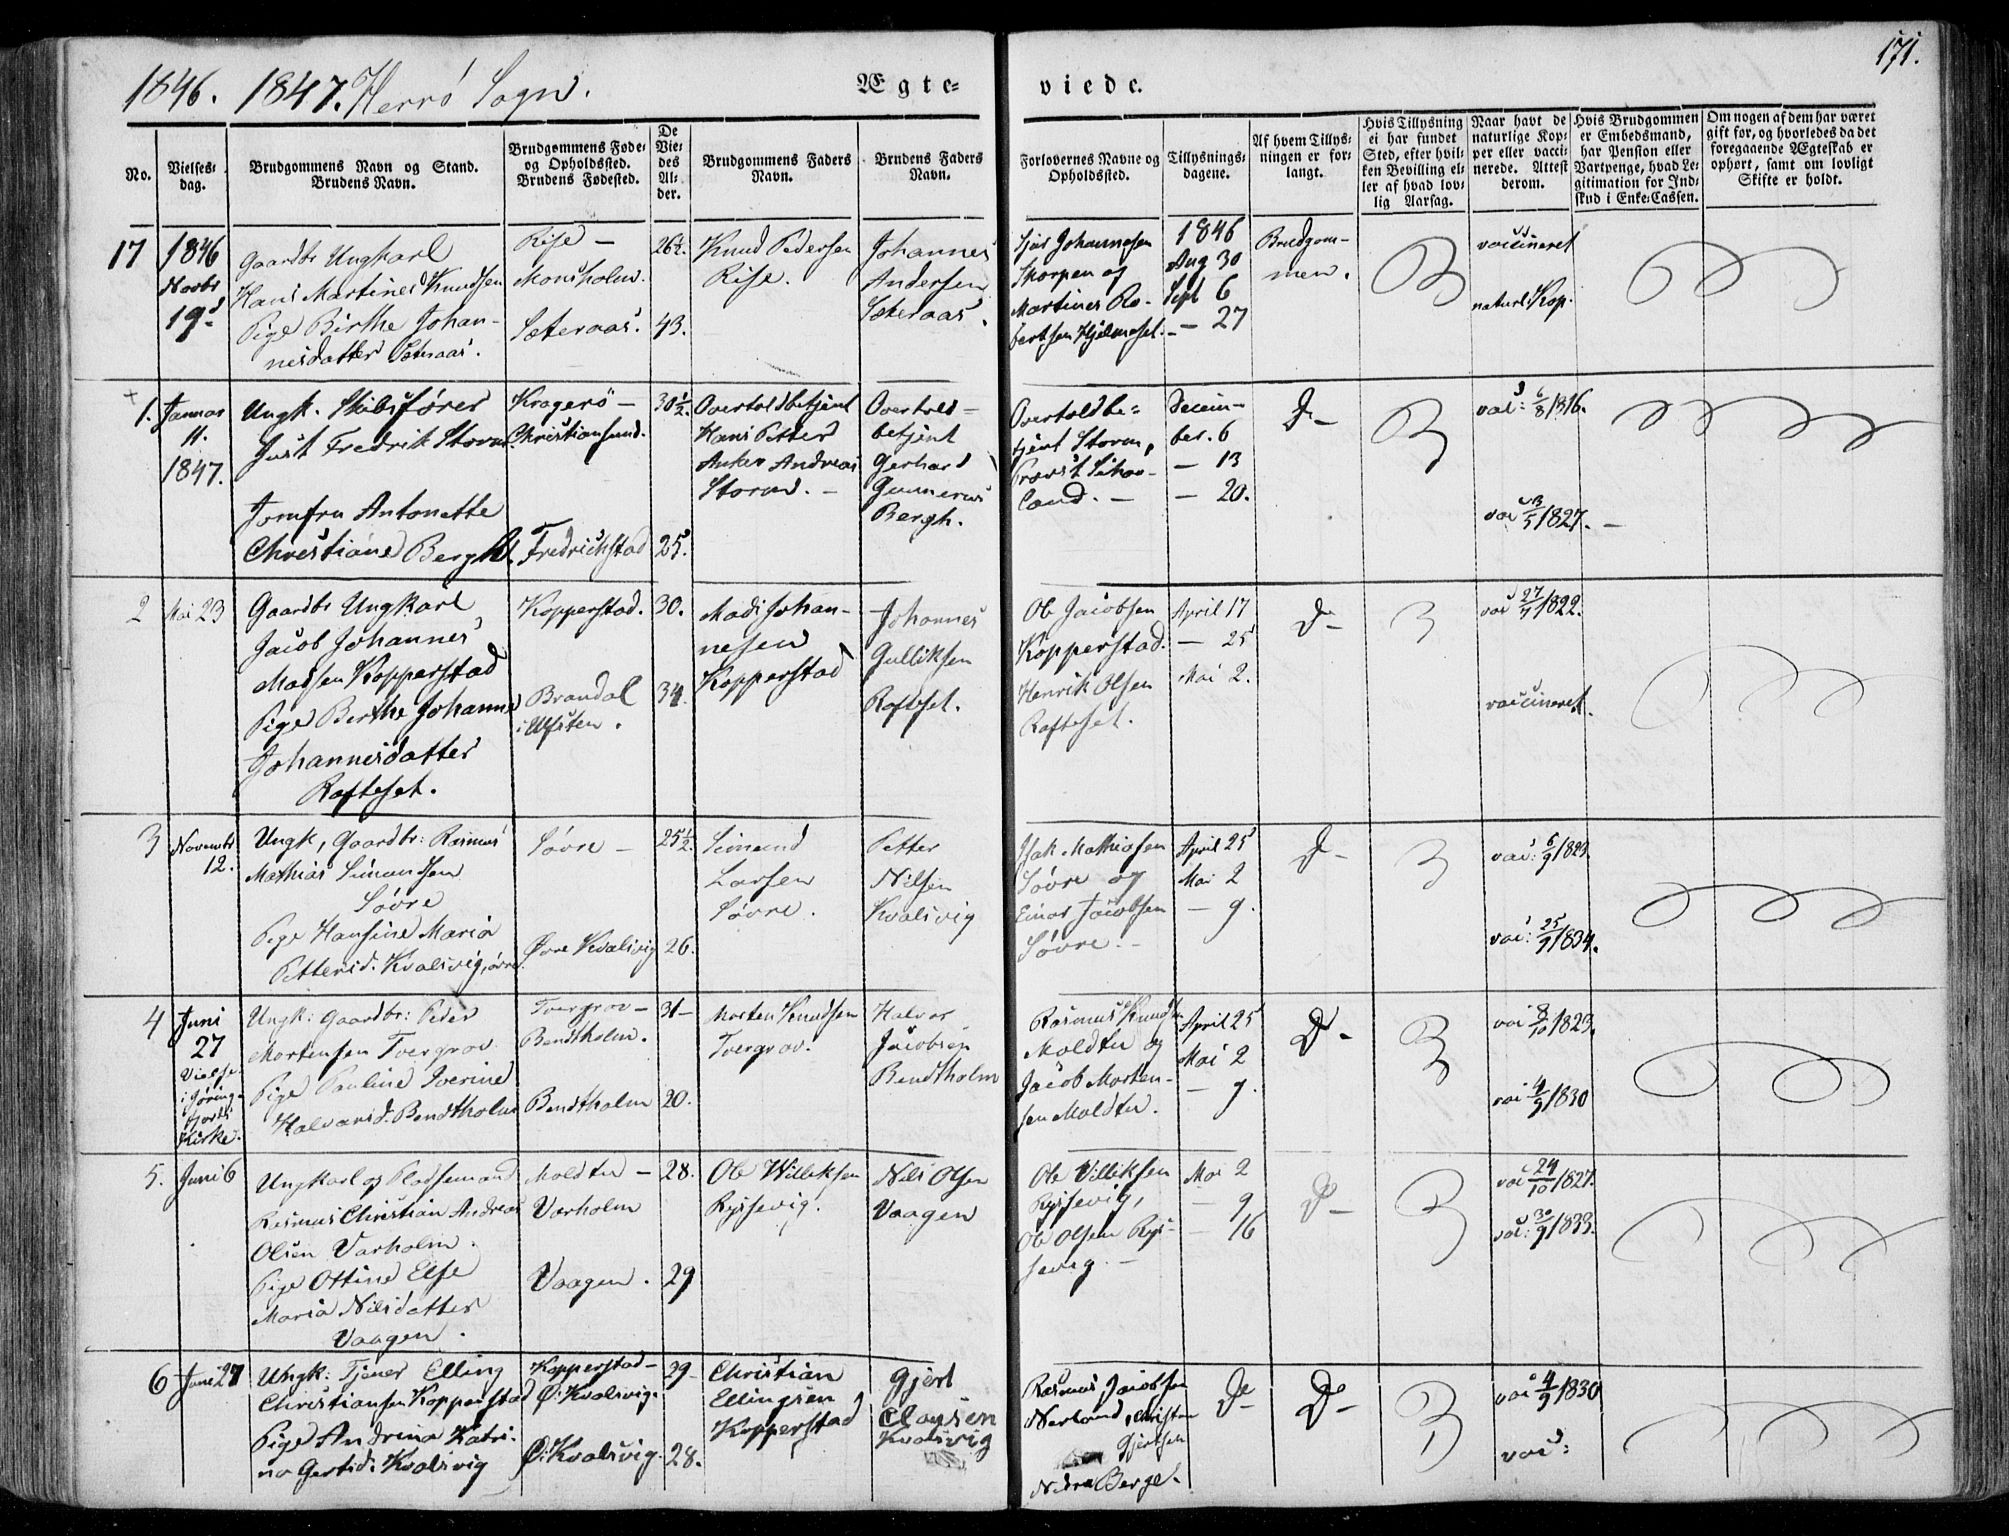 171.
1846. 1847. Herrö Sogn.
Ægte-
viede.
No.
Vielses-
dag.
Brudgommens Navn og Stand.
Brudens Navn.
Brudgommens Føde-
og Opholdssted.
Brudens Fødested.
De
Vie-
des
Al-
der.
Brudgommens Faders
Navn.
Brudens Faders
Navn.
Forlovernes Navne og
Opholdssted.
Tillysnings-
dagene.
Af hvem Tillys-
ningen er for-
langt.
Hvis Tillysning
ei har fundet
Sted, efter hvil-
ken Bevilling el-
ler af hvad lov-
lig Aarsag.
Naar havt de
naturlige Kop-
per eller vacci-
nerede. Attest
derom.
Hvis Brudgommen
er Embedsmand,
har Pension eller
Vartpenge, hvad Le-
gitimation for Ind-
skud i Enke-Cassen.
Om nogen af dem har været
gift før, og hvorledes da det
foregaaende Ægteskab er
ophørt, samt om lovligt
Skifte er holdt.
17
1846
Novbr
19d.
Gaardbr Ungkarl
Hans Martines Knudsen
Pige Birthe Johan-
nesdatter Sæteraas.
Rise –
Monsholm.
Sæteraas.
26½.
43.
Knud Pedersen
Rise.
Johannes
Andersen
Sæteraas.
Johannesen
Skorpen og
Martines Ro-
bertsen Hjelmeset.
1846
Aug 30
Sept 6
– 27
Brudgom-
men.
vaccineret
naturl. Kop.
1.
Januar
11.
1847.
Ungk. Skibsfører
Just Fredrik Storm.
Jomfru Antonette
Christiane Bergh.
Kragerö –
Christiansund.
Fredrichstad
30½.
25.
Overtoldbetjent
Hans Petter
Anker Andreas
Storm. –
Overtold-
betjent
Gerhard
Gunnerus
Bergh.
Overtoldbe-
tjent Storm,
Provst
land. –
Decem-
ber. 6
– 13
– 20.
D–
vac: 6/8 1816.
vac 13/5 1827. –
2
Mai 23
Gaardbr Ungkarl
Jacob Johannes
Madsen Kopperstad
Pige Berthe Johanne
Johannesdatter
Rafteset.
Kopperstad.
Brandal
i Ulfsten.
30.
34.
Mads Johan-
nesen
Kopperstad
Johannes
Gulliksen
Rafteset.
Ole Jacobsen
Kopperstad.
Henrik Olsen
Rafteset.
April 17
– 25
Mai 2.
D–
vac 27/7 1822.
vaccineret.
3
Novembr
12.
Ungk, Gaardbr: Rasmus
Mathias Simonsen
Søvre
Pige Hansine Maria
Pettersd. Kvalsvig, övre.
Søvre –
Øvre Kvalsvig
25½.
26.
Simund
Larsen
Søvre.
Petter
Nilsen
Kvalsvig
Isak Mathiasen
Søvre og
Einar Jacobsen
Søvre. –
April 25
Mai 2
– 9.
D–
vac: 6/9 1823.
vac: 25/9 1834.
4
Juni
27
Vielse
i Jøring-
fjords
Kirke.
Ungk: Gaardbr: Peder
Mortensen Tvergrov
Pige Pauline Iverine
Halvarsd. Bendtholm
Tvergrov –
Bendtholm.
Bendtholm
31–
20.
Morten Knudsen
Tvergrov.
Halvor
Jacobsen
Bendtholm
Rasmus Knudsen
Moldtu og
Jacob Morten-
sen Moldtu.
April 25
Mai 2
– 9.
D–
vac 8/10 1823.
vac 4/9 1830
5.
Juni 6
Ungkarl og Pladsemand
Rasmus Christian Andreas
Olsen Varholm.
Pige Ottine Else
Maria Nilsdatter
Vaagen.
Moldtu –
Varholm
Vaagen.
28.
29
Ole Williksen
Ryssevig.
Nils Olsen
Vaagen
Ole Villiksen
Ryssevig,
Ole Olsen Rys-
sevig. –
Mai 2
– 9
– 16
D–
vac 24/10 1827.
vac: 30/9 1833.
6
Juni 27
Ungk: Tjener Elling
Christiansen Kopperstad
Pige Andrina Katri-
na Gertsd. Kvalsvig
Kopperstad –
Ø: Kvalsvig.
Ø: Kvalsvig.
29–
28.
Christian
Ellingsen
Kopperstad
Gjert
Clausen
Kvalsvig
Rasmus Jacobsen
Nerland, Christen
Gjertsen
Nedre Berge.
D–
D–
vac 4/9 1830
vac: